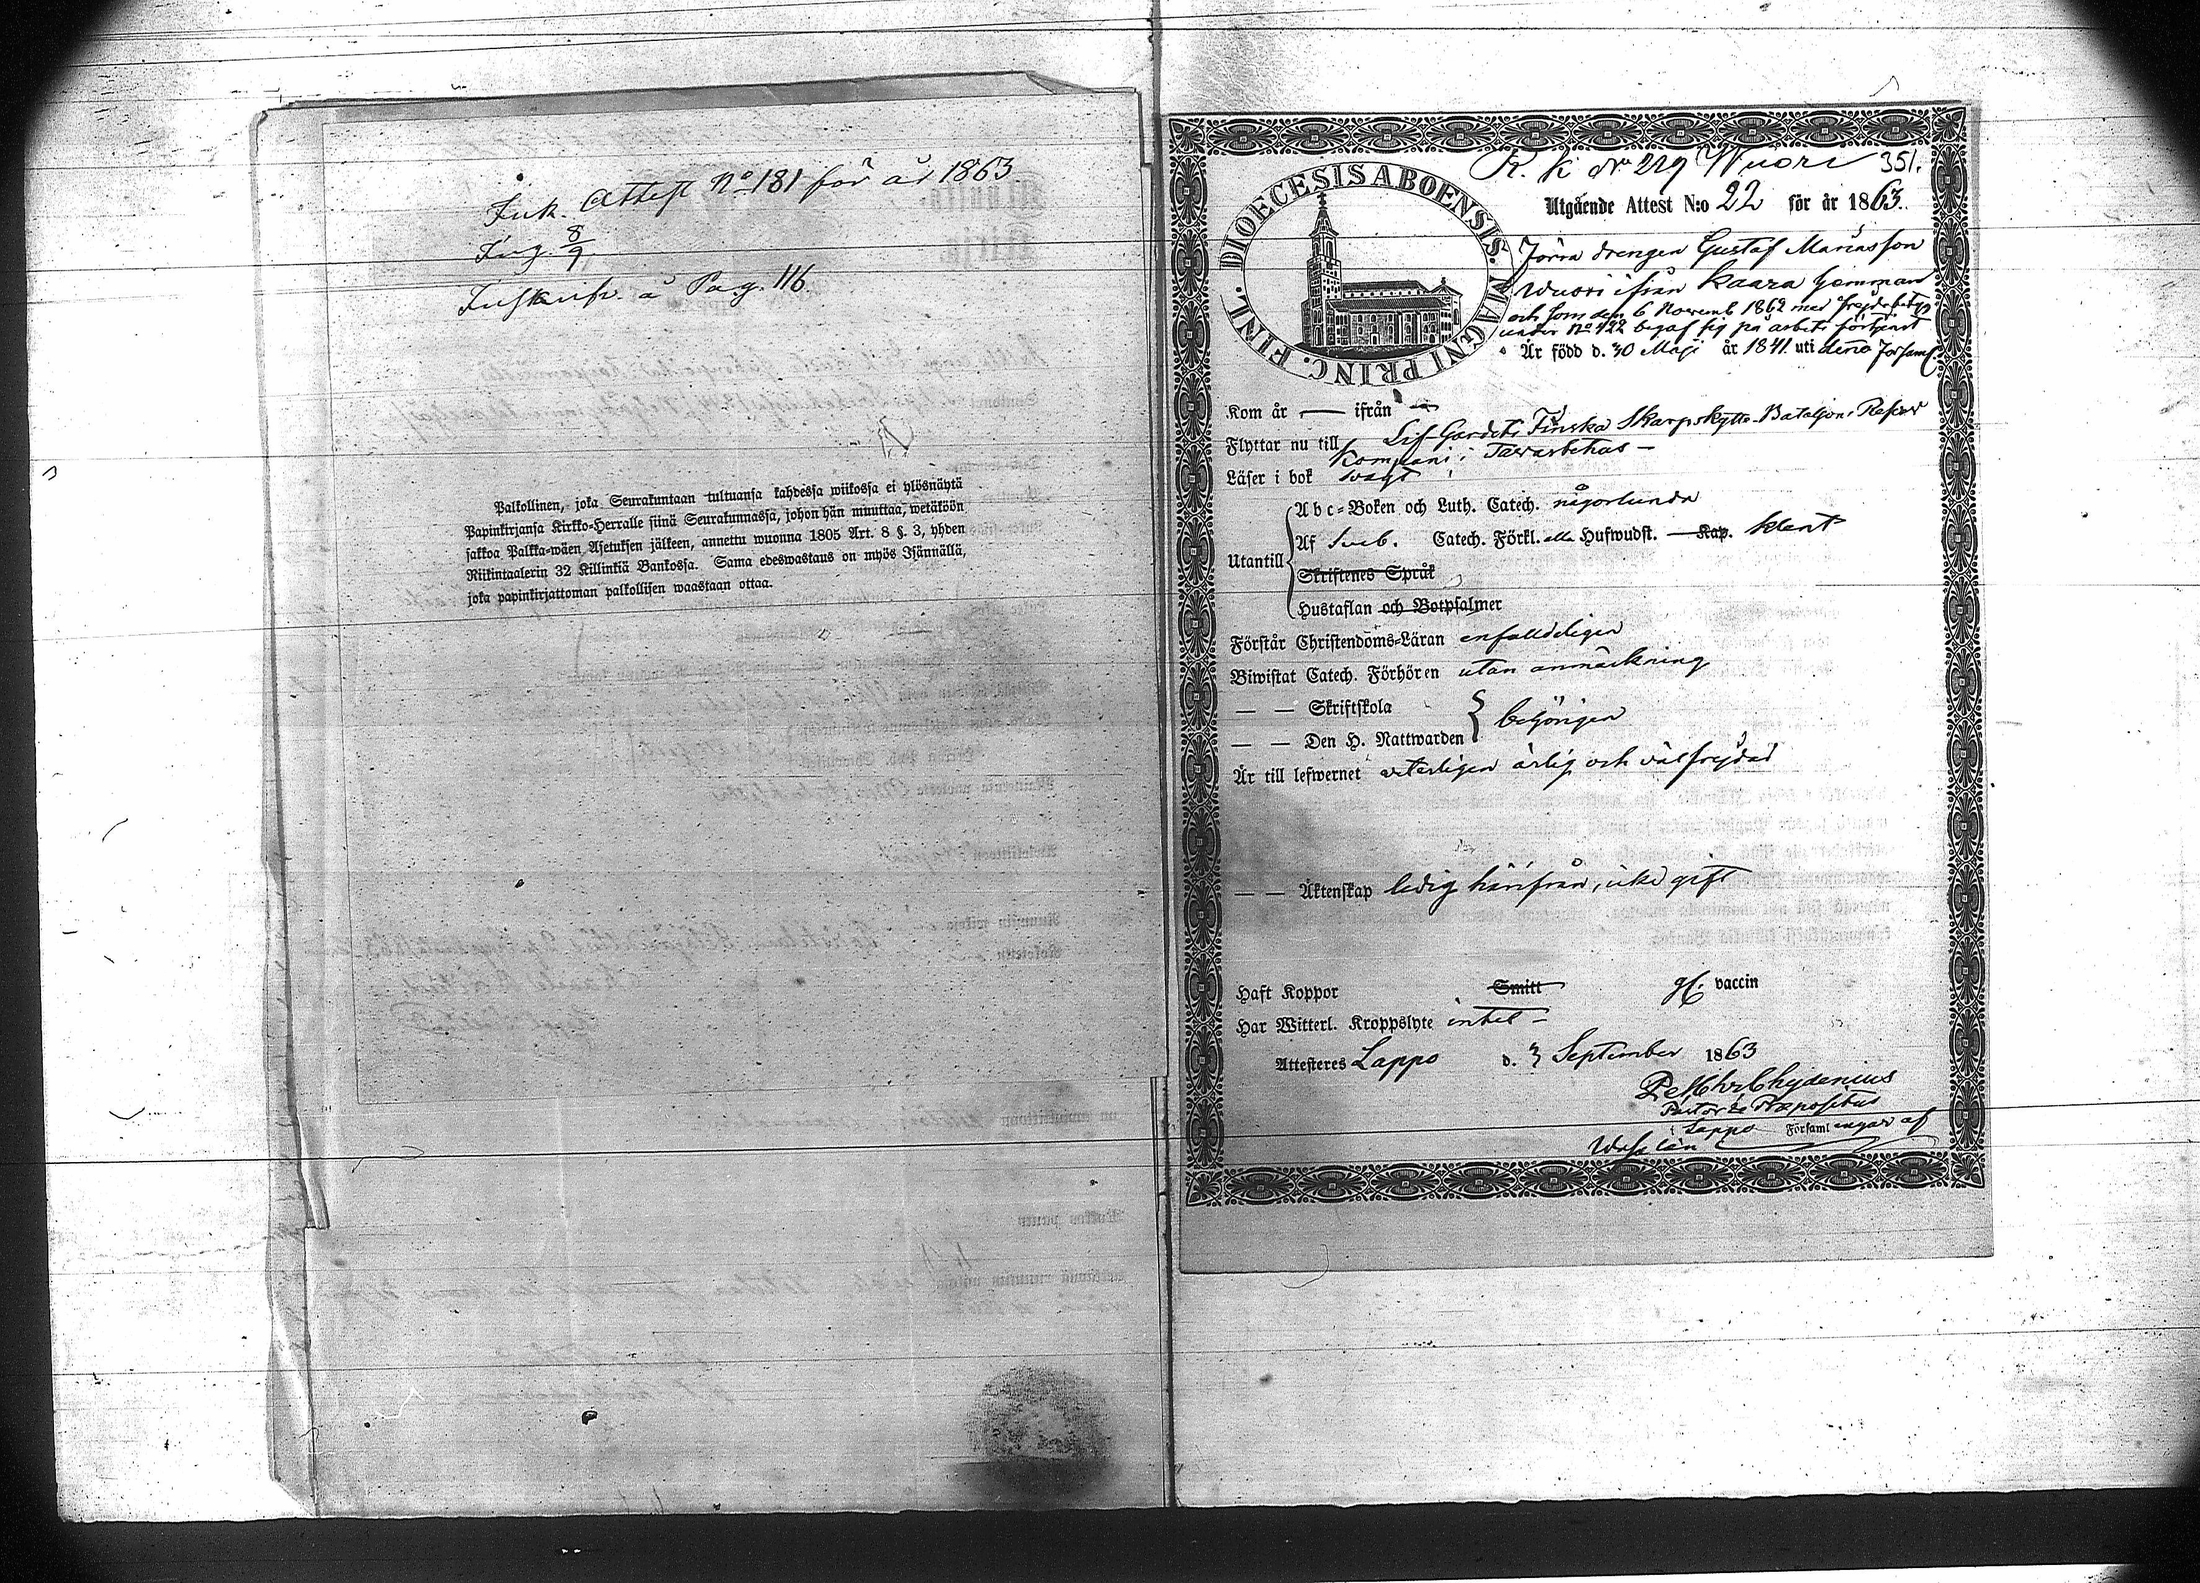 Ink. Attest No 181 för år 1863
Ing. 8/9
Inskrifv. å Pag. 116
Palkollinen, joka Seurakuntaan tultuansa kahdessa wiikossa ei ylösnäytä
Papinkirjansa Kirkko-Herralle siinä Seurakunnassa, johon hän muuttaa, wetäköön
sakkoa Palkka-wäen Asetuksen jälkeen, annettu wuonna 1805 Art. 8 §. 3, yhden
Riikintaalerin 32 Killinkiä Bankossa. Sama edeswastaus on myös Isännällä,
joka papinkirjattoman palkollisen waastaan ottaa.
R. K No 219 Wuori 351.
DIOECESIS ABOENSIS. MAGNI PRINC. FINL.
Utgående Attest N:o 22 för år 1863.
Förra drengen Gustaf Mariasson
Wuori ifrån Kaara hemman
och som den 6 Novemb 1862 med frejdebetyg
under No 422 begaf sig på arbets förtjenst
Är född d. 30 Maji år 1841 uti denna Församl.
Kom år — ifrån —
Flyttar nu till Lif-Gardets Finska Skarpskytte-Bataljons Reserv
Kompani i Tavastehus —
Läser i bok svagt
Abc-Boken och Luth. Catech. någorlunda
Utantill
Af Sveb. Catech. Förkl. alla Hufwudst. — Kap. klent
Skriftenes Språk
Hustaflan och Botpsalmer
Förstår Christendoms-Läran enfalldeligen
Biwistat Catech. Förhören utan anmärkning
— — Skriftskola
behörigen
— — Den H. Nattwarden
Är till lefwernet veterligen ärlig och välfrejdad
— — Äktenskap ledig härifrån, icke gift
Haft Koppor Smitt gl. vaccin
Har Witterl. Kroppslyte intet —
Attesteres Lappo d. 3 September 1863
Chydenius
Pastor & Præpositus
i Lappo Församlingar af
Wasa län